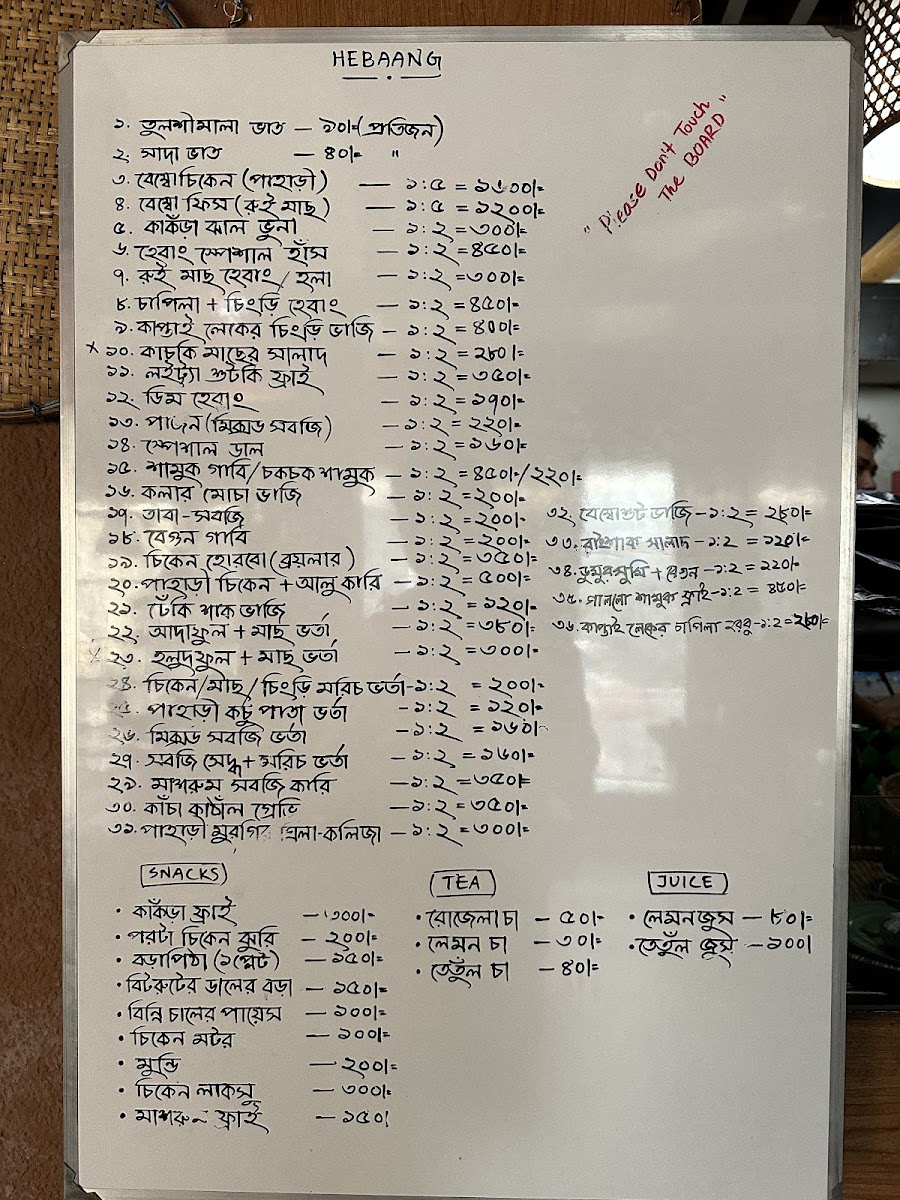 HEBAANG
"Please Don't Touch
The BOARD"
১. তুলশীমালা ভাত — ৯০/= (প্রতিজন)
২. সাদা ভাত — ৪০/= "
৩. বেম্বো চিকেন (পাহাড়ী) — ১:৫ = ১৬০০/=
৪. বেম্বো ফিস (রুই মাছ) — ১:৫ = ১২০০/=
৫. কাকঁড়া ঝাল ভুনা — ১:২ = ৩০০/=
৬. হেবাং স্পেশাল হাঁস — ১:২ = ৪৫০/=
৭. রুই মাছ হেবাং / হলা — ১:২ = ৩০০/=
৮. চাপিলা + চিংড়ি হেবাং — ১:২ = ৪৫০/=
৯. কাপ্তাই লেকের চিংড়ি ভাজি — ১:২ = ৪০০/=
x ১০. কাচকি মাছের সালাদ — ১:২ = ২৮০/=
১১. লইট্যা শুটকি ফ্রাই — ১:২ = ৩৫০/=
১২. ডিম হেবাং — ১:২ = ১৭০/=
১৩. পাজন (মিক্সড সবজি) — ১:২ = ২২০/=
১৪. স্পেশাল ডাল — ১:২ = ১৬০/=
১৫. শামুক গাবি/চকচক শামুক — ১:২ = ৪৫০/=/২২০/=
১৬. কলার মোচা ভাজি — ১:২ = ২০০/=
১৭. তাবা-সবজি — ১:২ = ২০০/=
১৮. বেগুন গাবি — ১:২ = ২০০/=
১৯. চিকেন হোরবো (ব্রয়লার) — ১:২ = ৩৫০/=
২০. পাহাড়ী চিকেন + আলু কারি — ১:২ = ৫০০/=
২১. ঢেঁকি শাক ভাজি — ১:২ = ১২০/=
২২. আদাফুল + মাছ ভর্তা — ১:২ = ৩৮০/=
x ২৩. হলুদফুল + মাছ ভর্তা — ১:২ = ৩০০/=
২৪. চিকেন/মাছ/চিংড়ি মরিচ ভর্তা — ১:২ = ২০০/=
২৫. পাহাড়ী কচু পাতা ভর্তা — ১:২ = ১২০/=
২৬. মিক্সড সবজি ভর্তা — ১:২ = ১৬০/=
২৭. সবজি সেদ্ধ + মরিচ ভর্তা — ১:২ = ১৬০/=
২৯. মাশরুম সবজি কারি — ১:২ = ৩৫০/=
৩০. কাঁচা কাঠাঁল গ্রেভি — ১:২ = ৩৫০/=
৩১. পাহাড়ী মুরগির গিলা-কলিজা — ১:২ = ৩০০/=
৩২. বেম্বোশুট ভাজি — ১:২ = ২৮০/=
৩৩. রাইশাক সালাদ — ১:২ = ১২০/=
৩৪. + বেগুন — ১:২ = ২২০/=
৩৫. শামুক ফ্রাই — ১:২ = ৪৫০/=
৩৬. কাপ্তাই লেকের চাপিলা — ১:২ = ২৮০/=
SNACKS
• কাকঁড়া ফ্রাই — ৩০০/=
• পরটা চিকেন ঝুরি — ২০০/=
• বড়াপিঠা (১প্লেট) — ১৫০/=
• বিটরুটের ডালের বড়া — ১৫০/=
• বিন্নি চালের পায়েস — ১০০/=
• চিকেন মটর — ১০০/=
• মুন্ডি — ২০০/=
• চিকেন লাকসু — ৩০০/=
• মাশরুম ফ্রাই — ১৫০/
TEA
• রোজেলা চা — ৫০/=
• লেমন চা — ৩০/=
• তেঁতুল চা — ৪০/=
JUICE
• লেমন জুস — ৮০/=
• তেতুঁল জুস — ১০০/